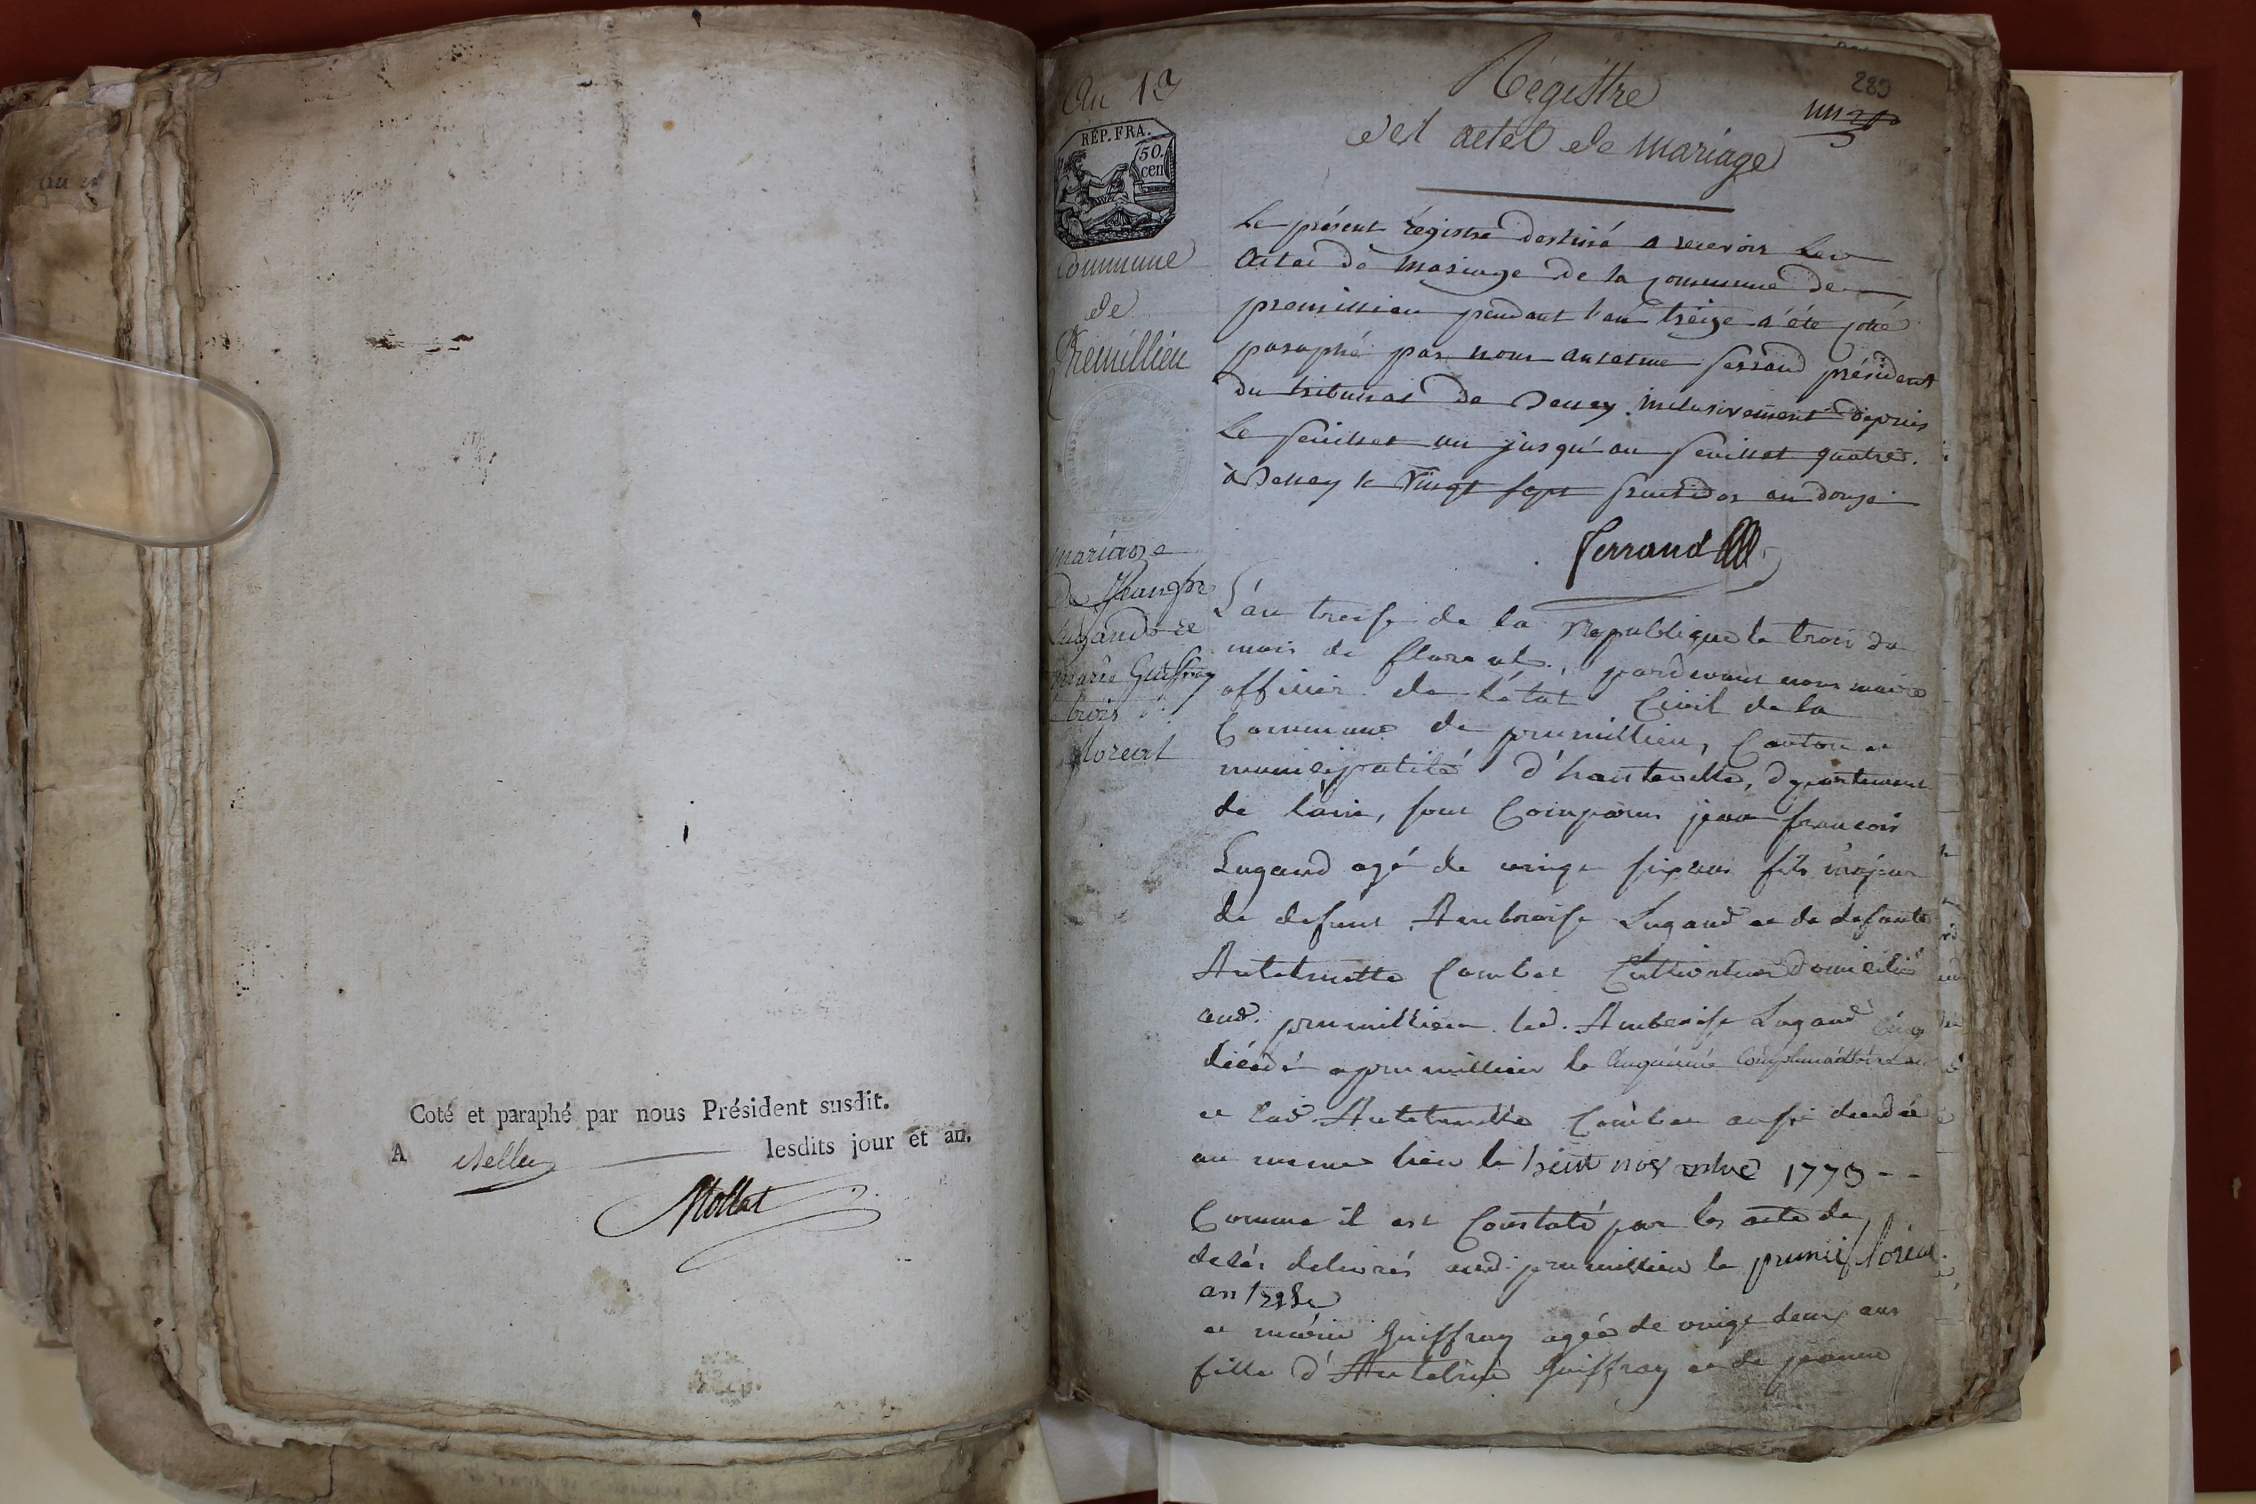 Coté et paraphé par nous Président susdit.
A Belley lesdits jour et an.
Mollet
289
An 13
RÉP. FRA.
50.
cen
Commune
de
Premillieu
mariage
De Jean fr
Lugand et
marie Guiffray
trois
floreal
Régistre
des actes de mariage
Le présent régistre destiné a recevoir les
Actes de Mariage de la commune de
premillieu pendant l'an treize a été coté
paraphé par nous anselme ferrand président
du tribunal de Belley inclusivement depuis
Le feuillet un jusqu'au feuillet quatre.
à Belley le Vingt sept fructidor an douze
ferrand
L'an treise de la Republique le trois du
mois de floreal, pardevant nous maire
officier de l'état Civil de la
Commune de prumillieu, Canton et
municipalité d'hauteville, departement
de l'ain, sont Comparus jean françois
Lugand agé de vingt six ans fils majeur
de defunt Ambroise Lugand et de defunte
Anthelmette Combet Cultivateur domicilié
aud. prumillieu led. Ambroise Lugand
décédé a prumillieu le Cinquième Complémentaire
et lad. Anthelmette Combet aussi decedée
au meme lieu le huit novembre 1775
Comme il est Constaté par les acte de
décés delivrés aud. prumillieu le premie floréal
an treise
et marie Guiffray agée de vingt deux ans
fille d'Anthelme Guiffray et de jeanne